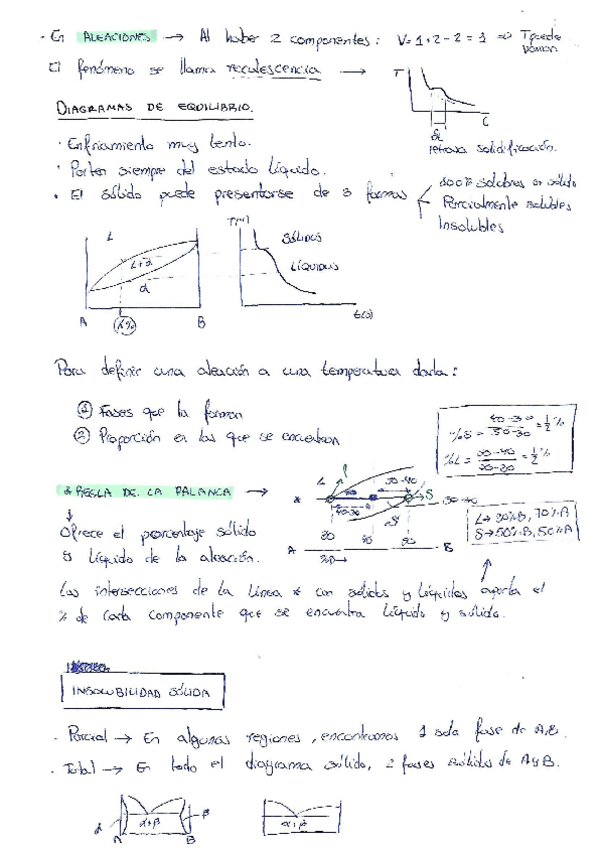 - En ALEACIONES → Al haber 2 componentes: V=1+2-2=1 ⇒ T puede variar
El fenómeno se llama reculescencia →
T
C
retrasa solidificación.
DIAGRAMAS DE EQUILIBRIO.
· Enfriamiento muy lento.
· Partir siempre del estado líquido.
· El sólido puede presentarse de 3 formas
100% solubles en sólido
Parcialmente solubles
Insolubles
L
L+α
α
A
B
SÓLIDUS
LÍQUIDUS
t(s)
Para definir una aleación a una temperatura dada:
① Fases que la forman
② Proporción en las que se encuentran
%S = 40-30/50-30 = 1/2 %
%L = 50-40/50-30 = 1/2 %
* REGLA DE LA PALANCA →
L
50-40
S
40-30
Ofrece el porcentaje sólido
y líquido de la aleación.
A
30
40
50
B
L→ 30%B, 70%A
S→ 50%B, 50%A
Las intersecciones de la línea * con sólidus y líquidus aporta el
% de cada componente que se encuentra líquido y sólido.
INSOLUBILIDAD SÓLIDA
· Parcial → En algunas regiones, encontramos 1 sola fase de A,B.
· Total → En todo el diagrama sólido, 2 fases sólidas de A y B.
α
α+β
β
A
B
α+β